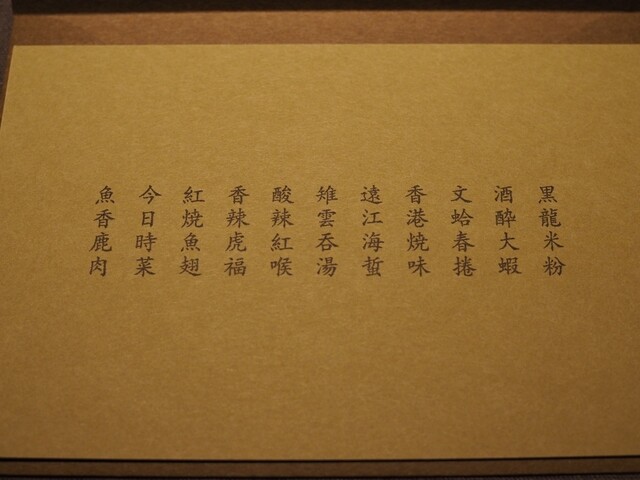 黒龍米粉
酒酔大蝦
文蛤春捲
香港焼味
遠江海蜇
雉雲呑湯
酸辣紅喉
香辣虎福
紅焼魚翅
今日時菜
魚香鹿肉